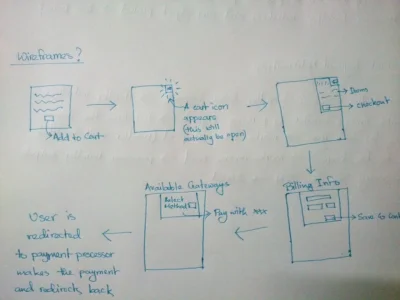 Wireframes?
Add to Cart
A cart icon
appears
(this will
actually be open)
Items
checkout
Billing Info
Save to Cont
Available Gateways
Select
Method
Pay with xxx
User is
redirected
to payment processor
makes the payment
and redirects back